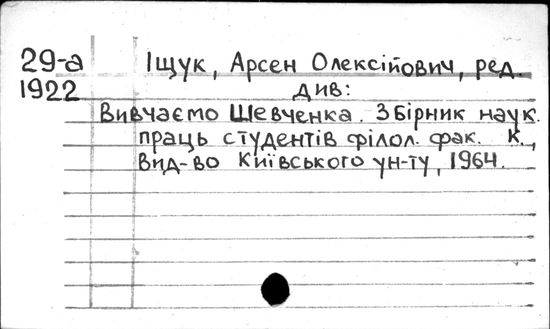 29-а Іщук, Арсен Олексійович, ред.
1922 див:
Вивчаємо Шевченка. Збірник наук.
праць студентів філол. фак. К.,
Вид-во Київського ун-ту, 1964.